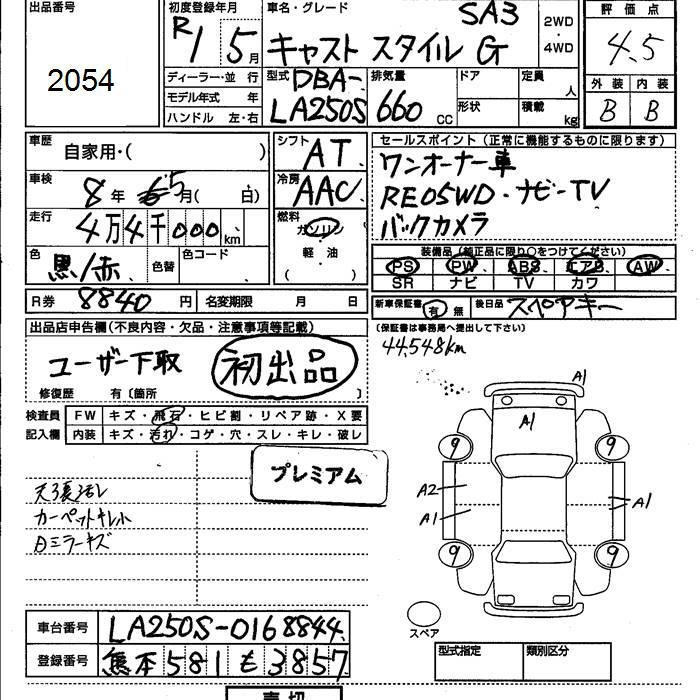 出品番号 2054
初度登録年月 R1 5月
車名・グレード SA3
キャスト スタイル G
2WD・4WD
評価点 4.5
外装 内装
B B
ディーラー・並 行
モデル年式 年
ハンドル 左・右
型式 DBA-
LA250S
排気量 660 CC
ドア
形状
定員 人
積載 kg
車歴 自家用・( )
車検 8年 5月( 日)
走行 4万4千000km
色 黒/赤 色替 色コード
R券 8840円 名変期限 月 日
シフト AT
冷房 AAC
燃料 ガソリン・軽油 ( )
セールスポイント (正常に機能するものに限ります)
ワンオーナー車
RE05WD・ナビ-TV
バックカメラ
装備品 (純正品に限り○をつけてください)
PS PW ABS エアB AW
SR ナビ TV カワ
新車保証書 有 無 後日品 スペアキー
(保証書は事務局へ提出して下さい)
44,548km
出品店申告欄(不良内容・欠品・注意事項等記載)
ユーザー下取 初出品
修復歴 有〔箇所 〕
検査員記入欄
FW キズ・飛石・ヒビ割・リペア跡・X要
内装 キズ・汚れ・コゲ・穴・スレ・キレ・破レ
プレミアム
天張汚レ
カーペットキレ小
日ミラーキズ
A1
A1
9 9
A2 A1
A1
9 9
スペア
車台番号 LA250S-0168844
登録番号 熊本 581 も 3857
型式指定 類別区分
売切